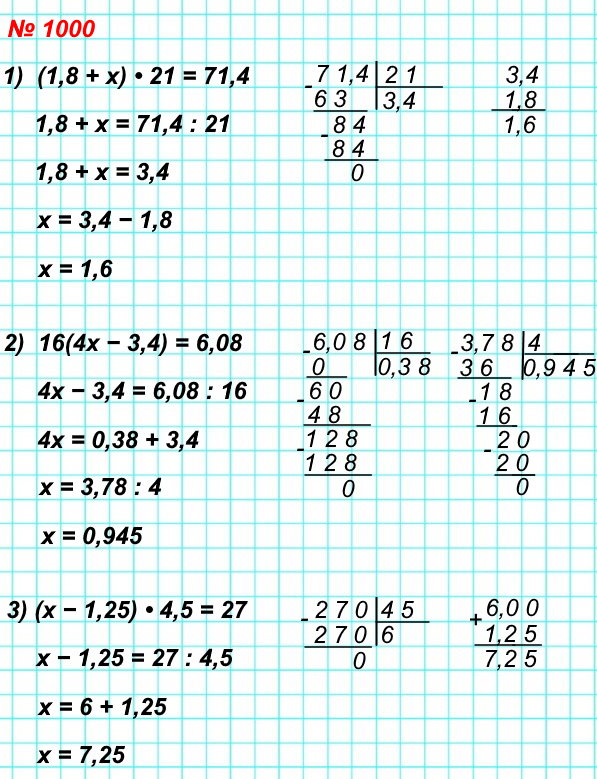 № 1000
1) (1,8 + x) • 21 = 71,4
1,8 + x = 71,4 : 21
1,8 + x = 3,4
x = 3,4 − 1,8
x = 1,6
- 71,4 21
63 3,4
- 84
84
0
3,4
1,8
1,6
2) 16(4x − 3,4) = 6,08
4x − 3,4 = 6,08 : 16
4x = 0,38 + 3,4
x = 3,78 : 4
x = 0,945
- 6,08 16
0 0,38
- 60
48
- 128
128
0
- 3,78 4
36 0,945
- 18
16
- 20
20
0
3) (x − 1,25) • 4,5 = 27
x − 1,25 = 27 : 4,5
x = 6 + 1,25
x = 7,25
- 270 45
270 6
0
+ 6,00
1,25
7,25